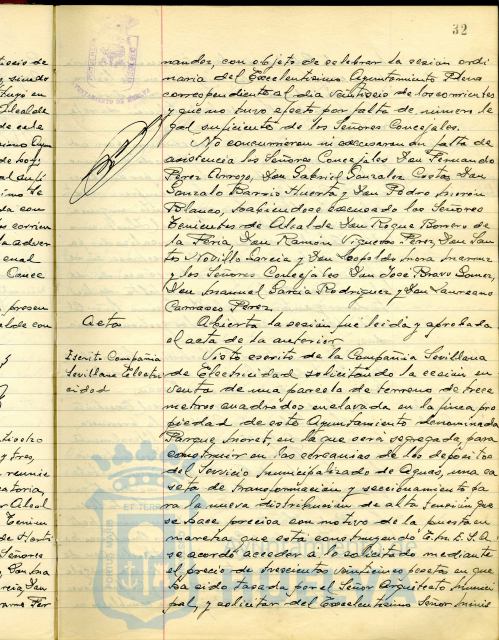 32
nandos, con objeto de celebrar la sesion ordi
naria del Excelentisimo Ayuntamiento Pleno
correspondiente al dia veintiseis de los corrientes
y que no tuvo efecto por falta de numero le
gal suficiente de los Señores Concejales.
No concurrieron ni excusaron su falta de
asistencia los Señores Concejales Don Fernando
Perez Arroyo, Don Gabriel Gonzalez Costas, Don
Gonzalo Barrio Huerta y Don Pedro Morón
Polanco, habiendose excusado los Señores
Tenientes de Alcalde Don Roque Borrero de
la Feria, Don Ramón Vigueras Perez, Don San
tos Novillo Garcia y Don Leopoldo Mora
y los Señores Concejales Don Jose Bravo Gomez,
Don Manuel Garcia Rodriguez y Don Laureano
Carrasco Perez.
Acta
Abierta la sesión, fué leida y aprobada
el acta de la anterior.
Escrito Compañia
Sevillana Electri
cidad
Visto escrito de la Compañia Sevillana
de Electricidad solicitando la cesion en
venta de una parcela de terreno de trece
metros cuadrados enclavada en la finca pro
piedad de este Ayuntamiento denominada
Parque Moret, en la que será segregada, para
construir en las cercanias de los depositos
del Servicio Municipalizado de Aguas, una ca
seta de transformación y seccionamiento pa
ra la nueva distribucion de alta tension que
se hace precisa con motivo de la puesta en
marcha que está construyendo
se acordó acceder a lo solicitado mediante
el precio de trescientas veinticinco pesetas en que
ha sido tasada por el Señor Arquitecto Munici
pal, y solicitar del Excelentisimo Señor Minis